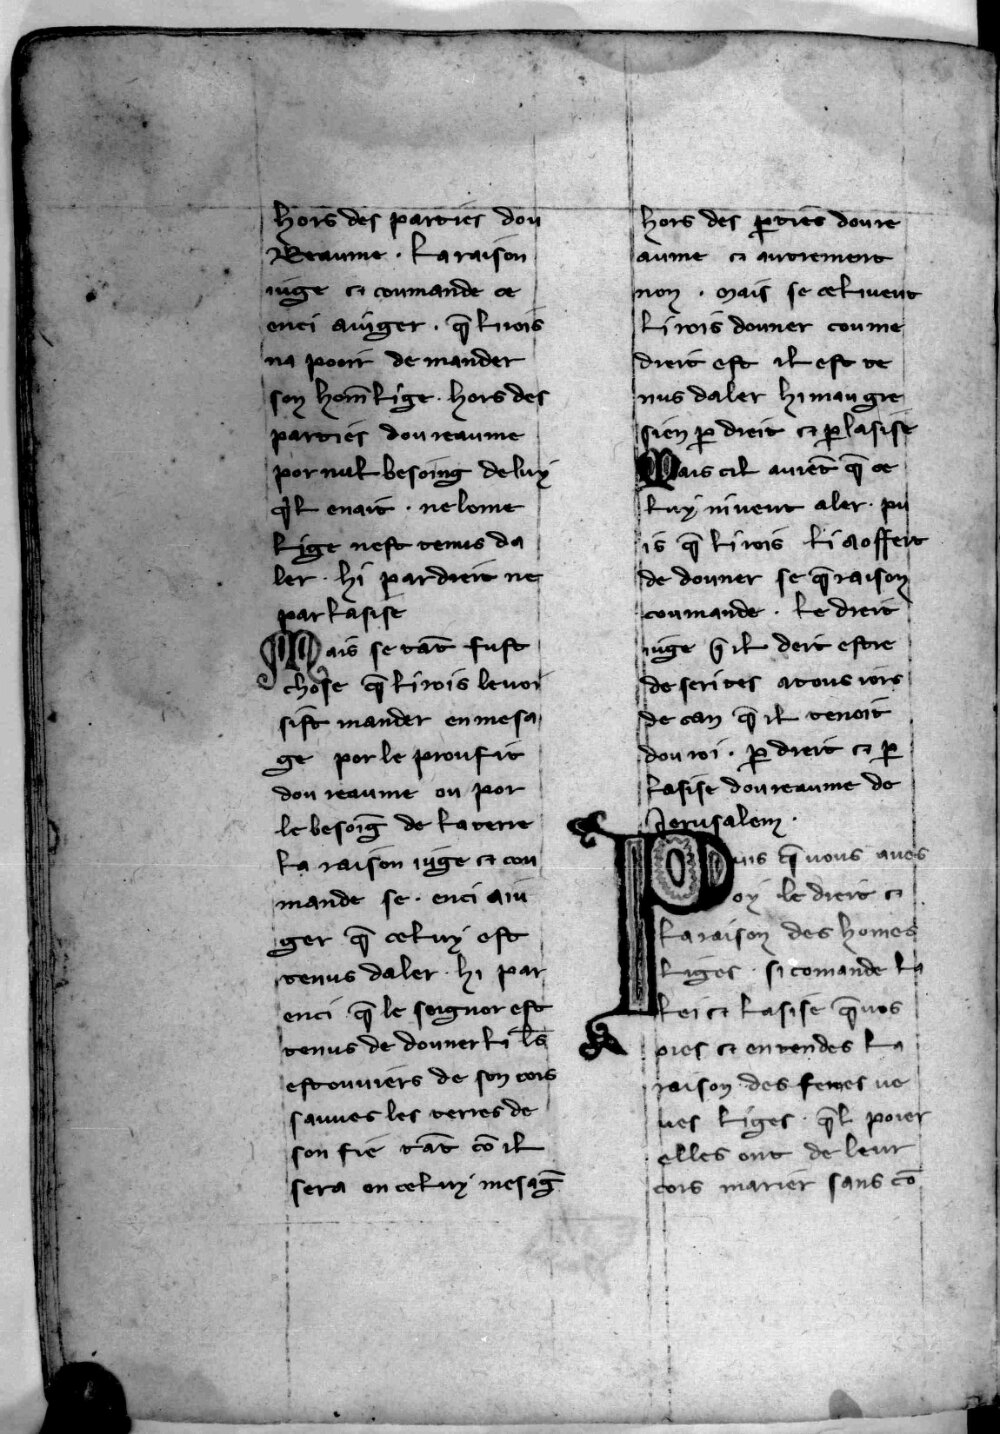 hors des parties dou
Reaume . La raison
iuge et coumande ce
enci a iuger . q̄ li rois
na pooir de mander
son hom̄ lige . hors des
parties dou reaume
por nul besoing de luy
q̄l en ait . ne lome
lige nest tenus da
ler . hi par dreit ne
par lasise
Mais se tāt fust
chose q̄ li rois le vou
sist mander en mesa
ge por le proufit
dou reaume ou por
le besoīg de la terre
La raison iuge et cou
mande se . enci a iu
ger q̄ celuy est
tenus daler . hi par
enci q̄ le seignor est
tenus de donner li ses
estouviers de son cors
sauves les terres de
son fie tāt cō il
sera en celuy mesaḡ
hors des p̄ties dou re
aume et autrement
non . Mais se celi veut
li rois douner coume
dreit est il est te
nus daler hi maugre
sien p̄ dreit et p̄ lasise
Mais cil avient q̄ ce
luy ni veut aler . pu
is q̄ li rois li a offert
de douner se q̄ raison
coumande . Le dreit
iuge q̄ il deit estre
deserites a tous iors
de can q̄ il tenoit
dou roi . p̄ dreit et p̄
lasise dou reaume de
Jerusalem .
Puis q̄ vous aves
oy le dreit et
la raison des homes
liges . si comande la
lei et lasise q̄ vos
oies et entendes la
raison des femes ve
ves liges . q̄l poier
elles ont de leur
cors marier sans cō